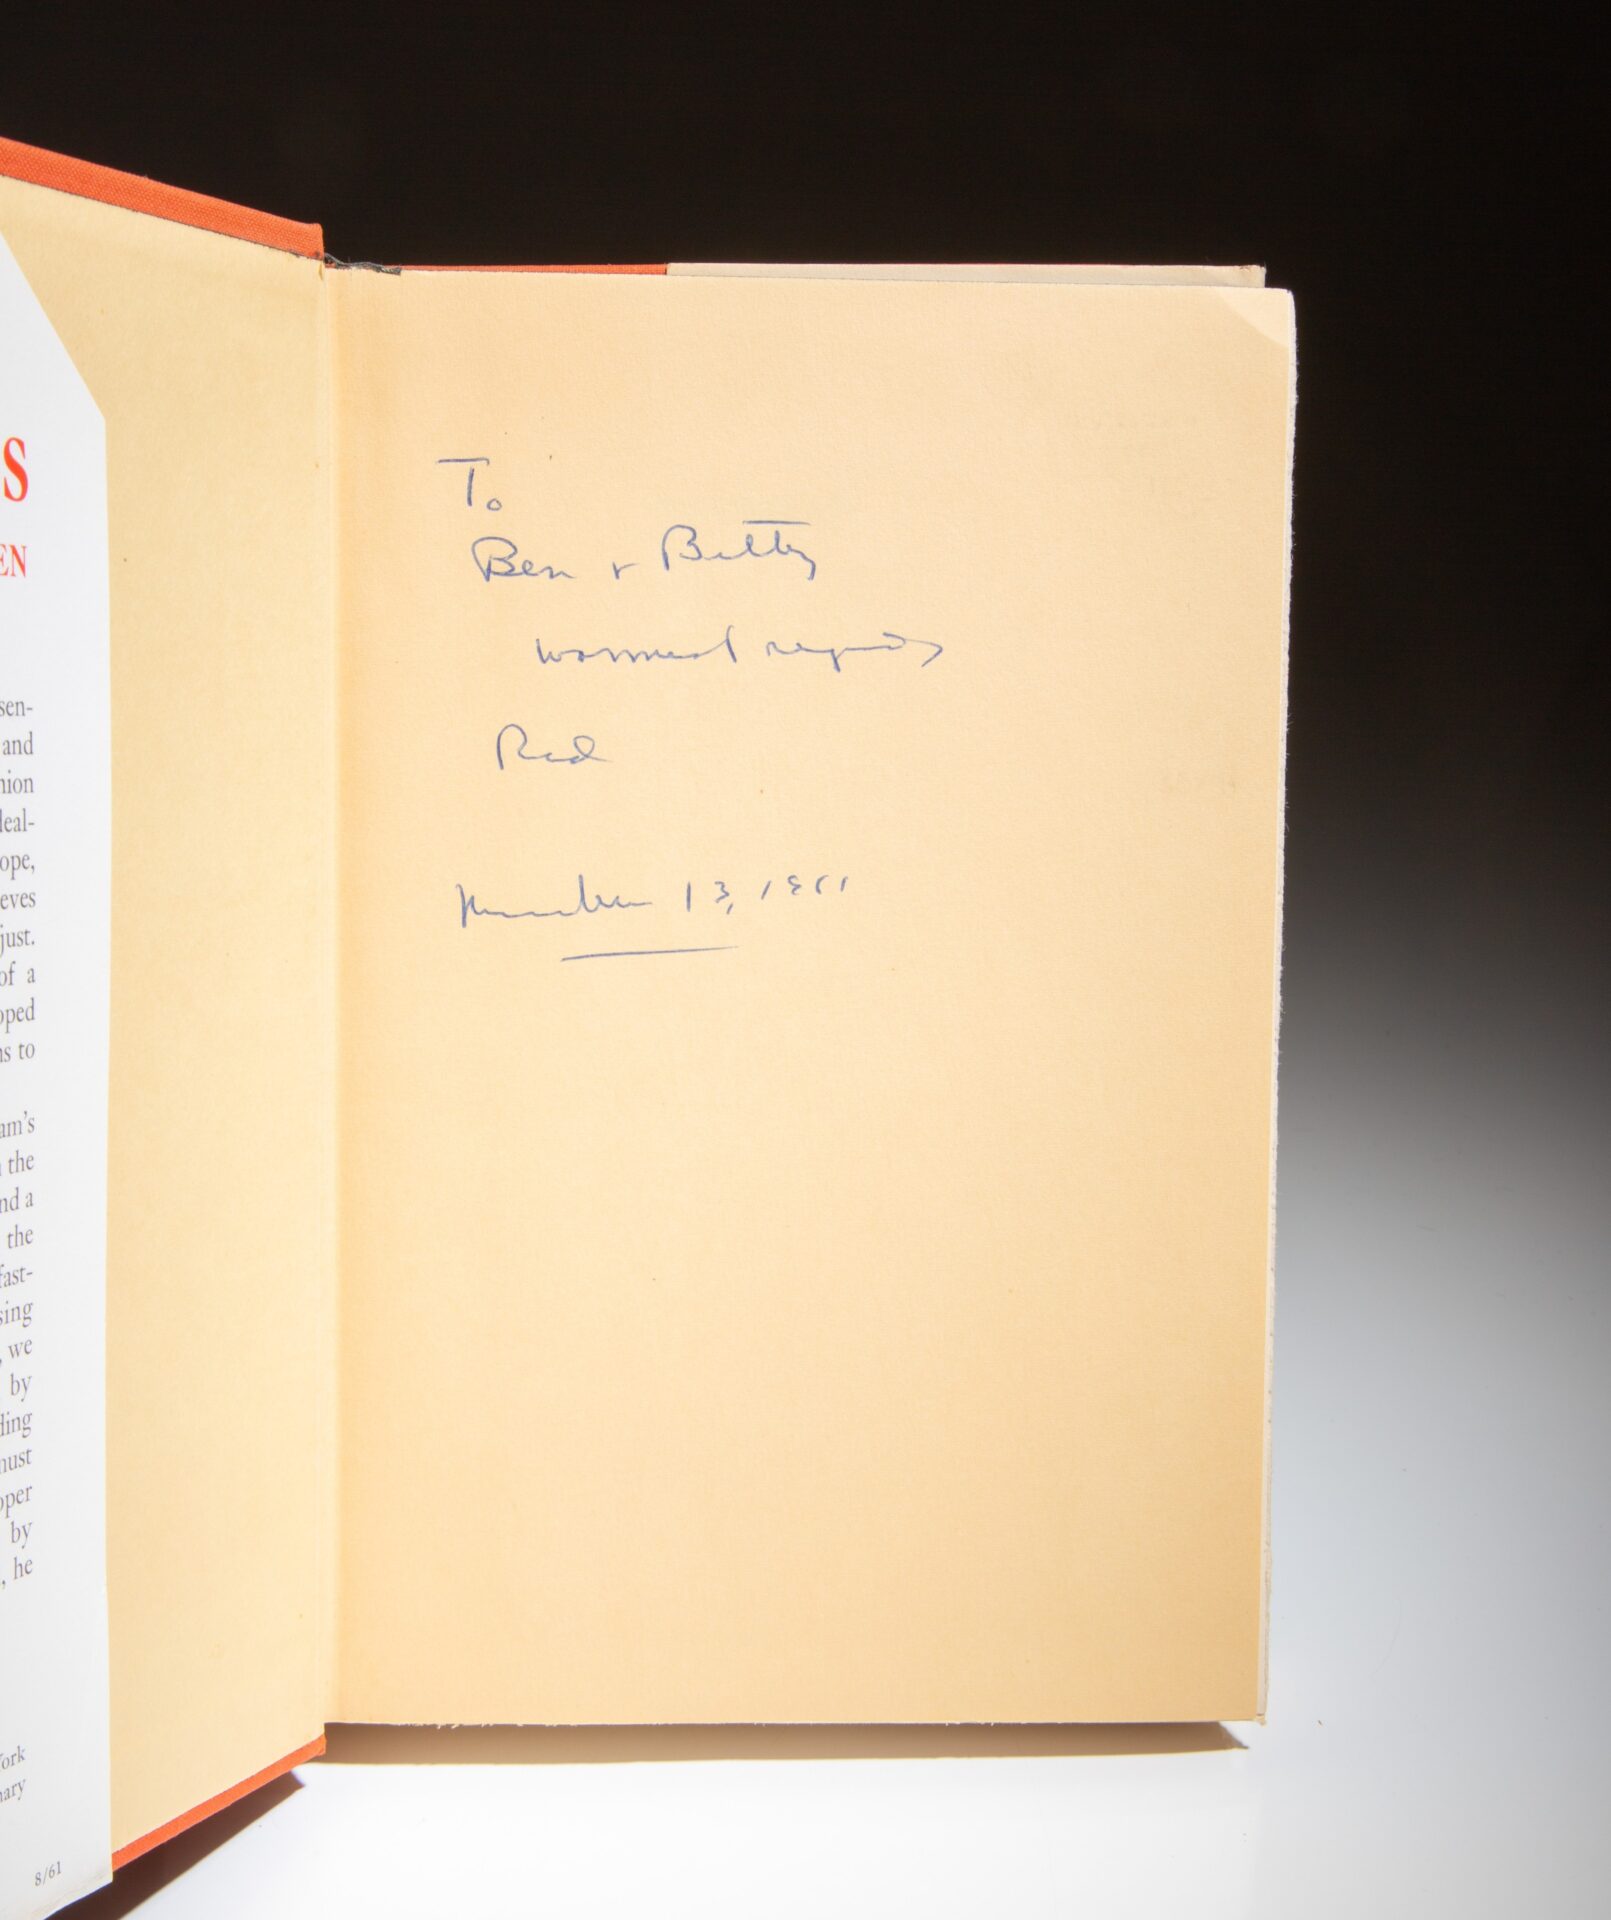 S
EN
sen-
and
nion
deal-
ope,
eves
just.
of a
oped
ns to
am's
the
nd a
the
fast-
sing
, we
by
ding
must
oper
by
, he
York
nary
8/61
To
Ben + Betty
warmest regards
Red
13, 1961